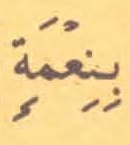 بِنِعْمَةٍ